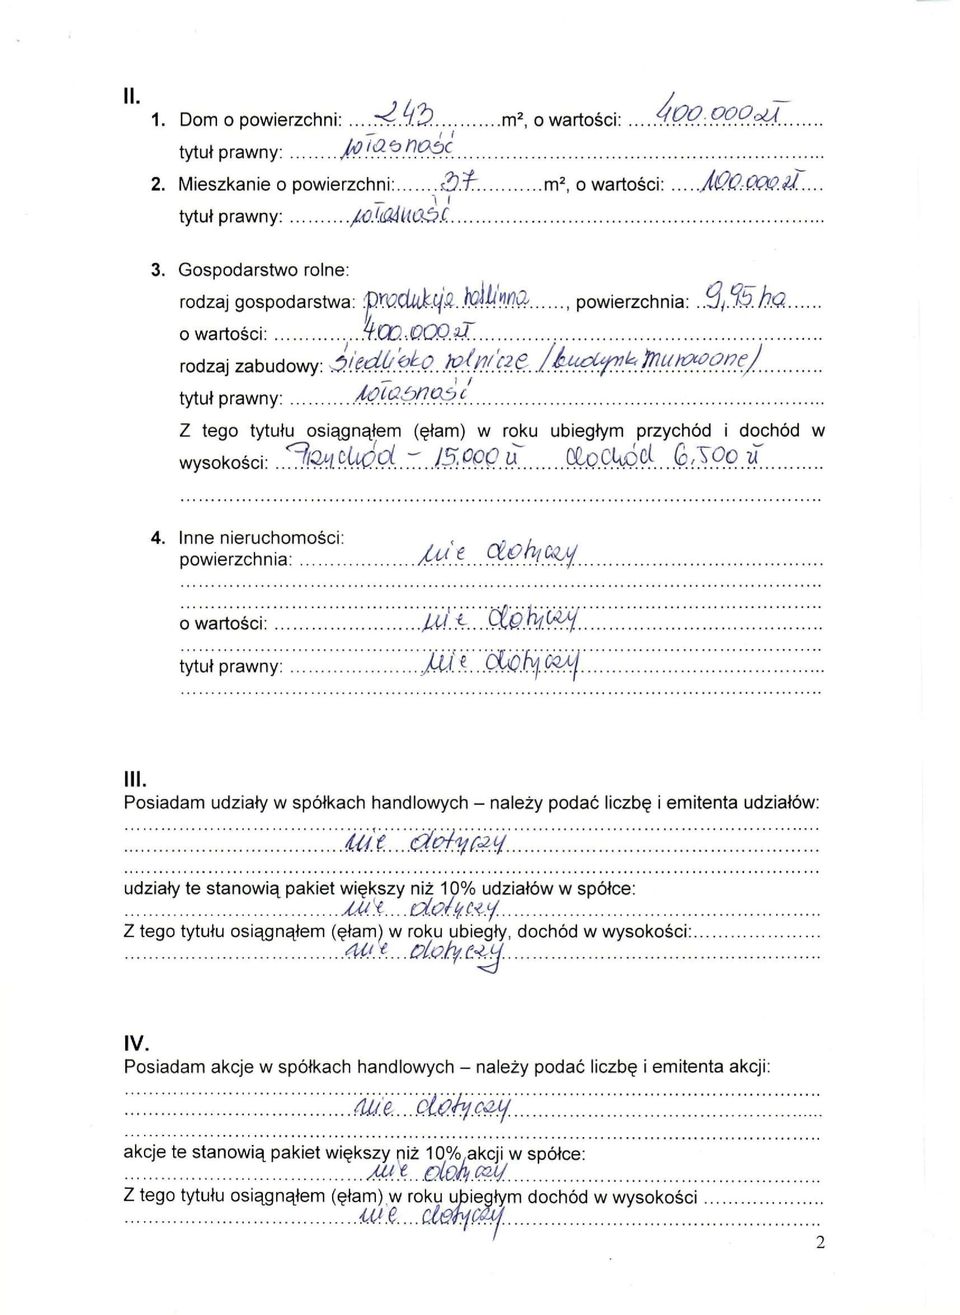 II.
1. Dom o powierzchni: .....243...........m², o wartości: .....400.000 zł.......
tytuł prawny: ........własność..........
2. Mieszkanie o powierzchni:.......37...........m², o wartości: .....100.000 zł....
tytuł prawny: ..........własność..........
3. Gospodarstwo rolne:
rodzaj gospodarstwa: produkcja roślinna......, powierzchnia: ..9,95 ha......
o wartości: ..............400.000 zł..........
rodzaj zabudowy: siedlisko rolnicze /budynki murowane/...........
tytuł prawny: ...........własność..........
Z tego tytułu osiągnąłem (ęłam) w roku ubiegłym przychód i dochód w
wysokości: ...Przychód - 15.000 zł.......dochód 6,500 zł..........
4. Inne nieruchomości:
powierzchnia: ...................nie dotyczy..........
o wartości: ........................nie dotyczy..........
tytuł prawny: ......................nie dotyczy..........
III.
Posiadam udziały w spółkach handlowych – należy podać liczbę i emitenta udziałów:
nie dotyczy
udziały te stanowią pakiet większy niż 10% udziałów w spółce:
nie dotyczy
Z tego tytułu osiągnąłem (ęłam) w roku ubiegły, dochód w wysokości:.....................
nie dotyczy
IV.
Posiadam akcje w spółkach handlowych – należy podać liczbę i emitenta akcji:
nie dotyczy
akcje te stanowią pakiet większy niż 10% akcji w spółce:
nie dotyczy
Z tego tytułu osiągnąłem (ęłam) w roku ubiegłym dochód w wysokości ....................
nie dotyczy
2